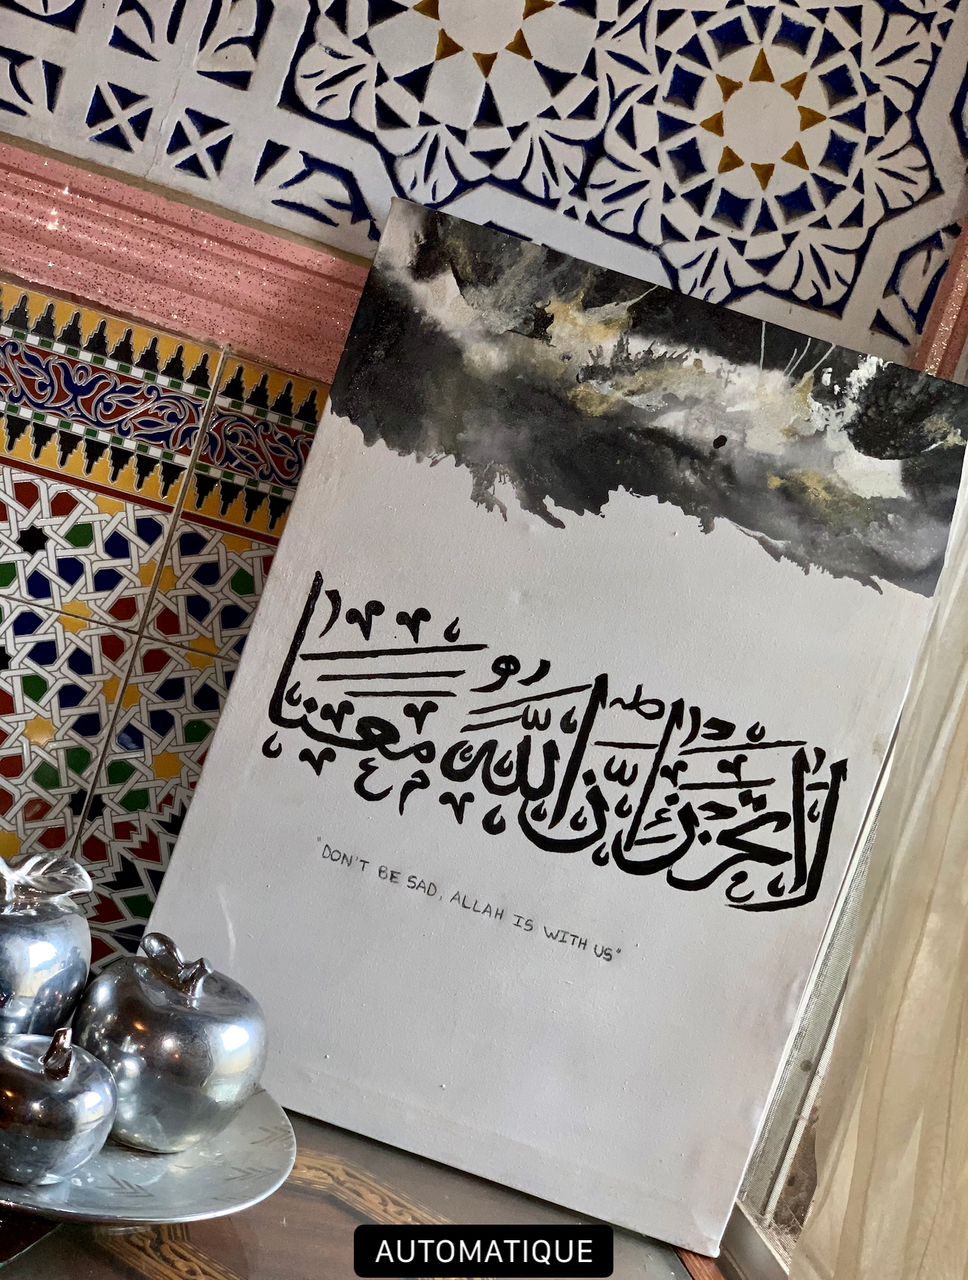 لا تحزن إن الله معنا
"DON'T BE SAD, ALLAH IS WITH US"
AUTOMATIQUE